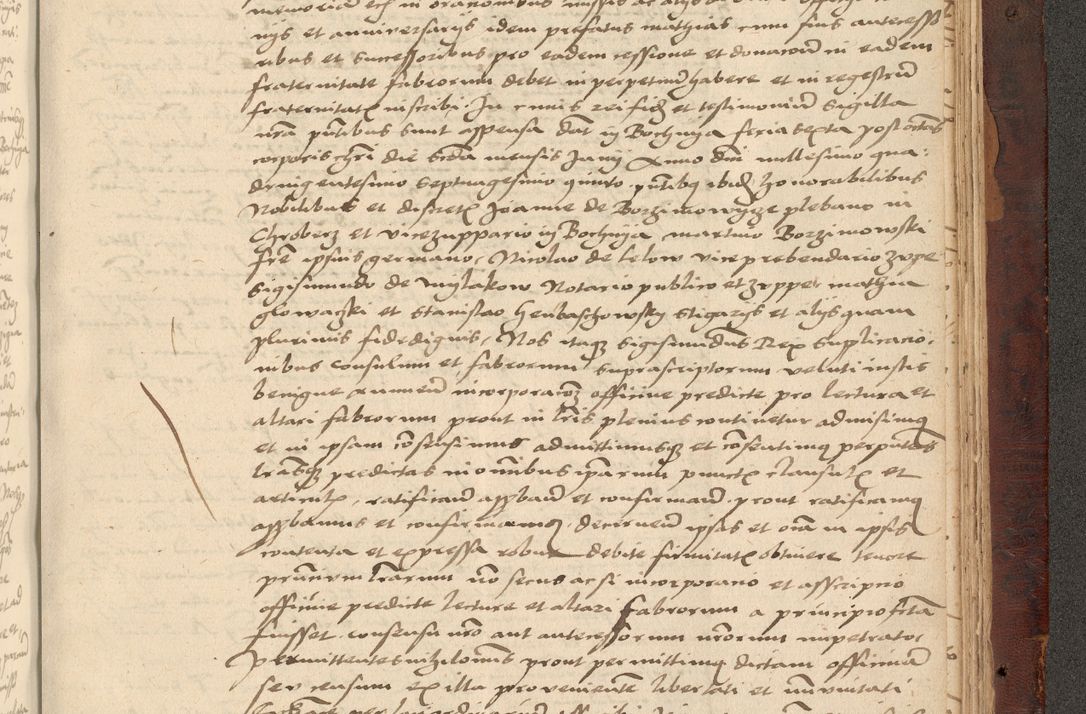 memoriam etiam in orationibus missis ac alys
nys et anniversarys idem prefatus mathias cum suis antecesso
ribus et successoribus pro eadem cessione et donacione in eadem
fraternitate fabrorum debet in perpetuum habere et in registrum
fraternitatis inscribi. In cuius rei fidem et testimonium Sigilla
nostra presentibus sunt appensa dat in Bochnya feria Sexta post octavas
corporis christi die secunda mensis Juny Anno domini millesimo qua:
dringentesimo Septuagesimo quinto presentibus ibidem honorabilibus
Nobilibus et discretis Joanne de Borzimowycze plebano in
Chroberz et vicezuppario in Bochnya martino Borzimowski
fratre ipsius germano, Nicolao de lelow vice prebendario zupe
Sigismundo de mylakow Notario publico et zuppe mathia
glowaczki et Stanislao Henbaschowsky stigarys et alys quam
plurimis fidedignis, Nos itaque Sigismundus Rex Suplicacio:
nibus consulum et fabrorum suprascriptorum veluti iustis
benigne annuentes incorporacionem officine predicte pro lectura et
altari fabrorum prout in literis plenius continetur admisimus
et in ipsam consensimus admittimusque et consentimus per presentes
literasque predictas in omnibus earum punctis clausulis et
articulis, ratificandas approbandas et confirmandas prout ratificamus
approbamus et confirmamus, decernentes ipsas et omnia in ipsis
contenta et expressa robur debite firmitatis obtinere tenore
presentium literarum non secus ac si incorporatio et asscriptio
officine predicte lecture et altari fabrorum a principio facta
fuisset consensu nostro aut antecessorum nostrorum impetrato
permittentes nihilominus prout permittimus dictam officinam
seu censum ex illa provenientem libertati et immunitati